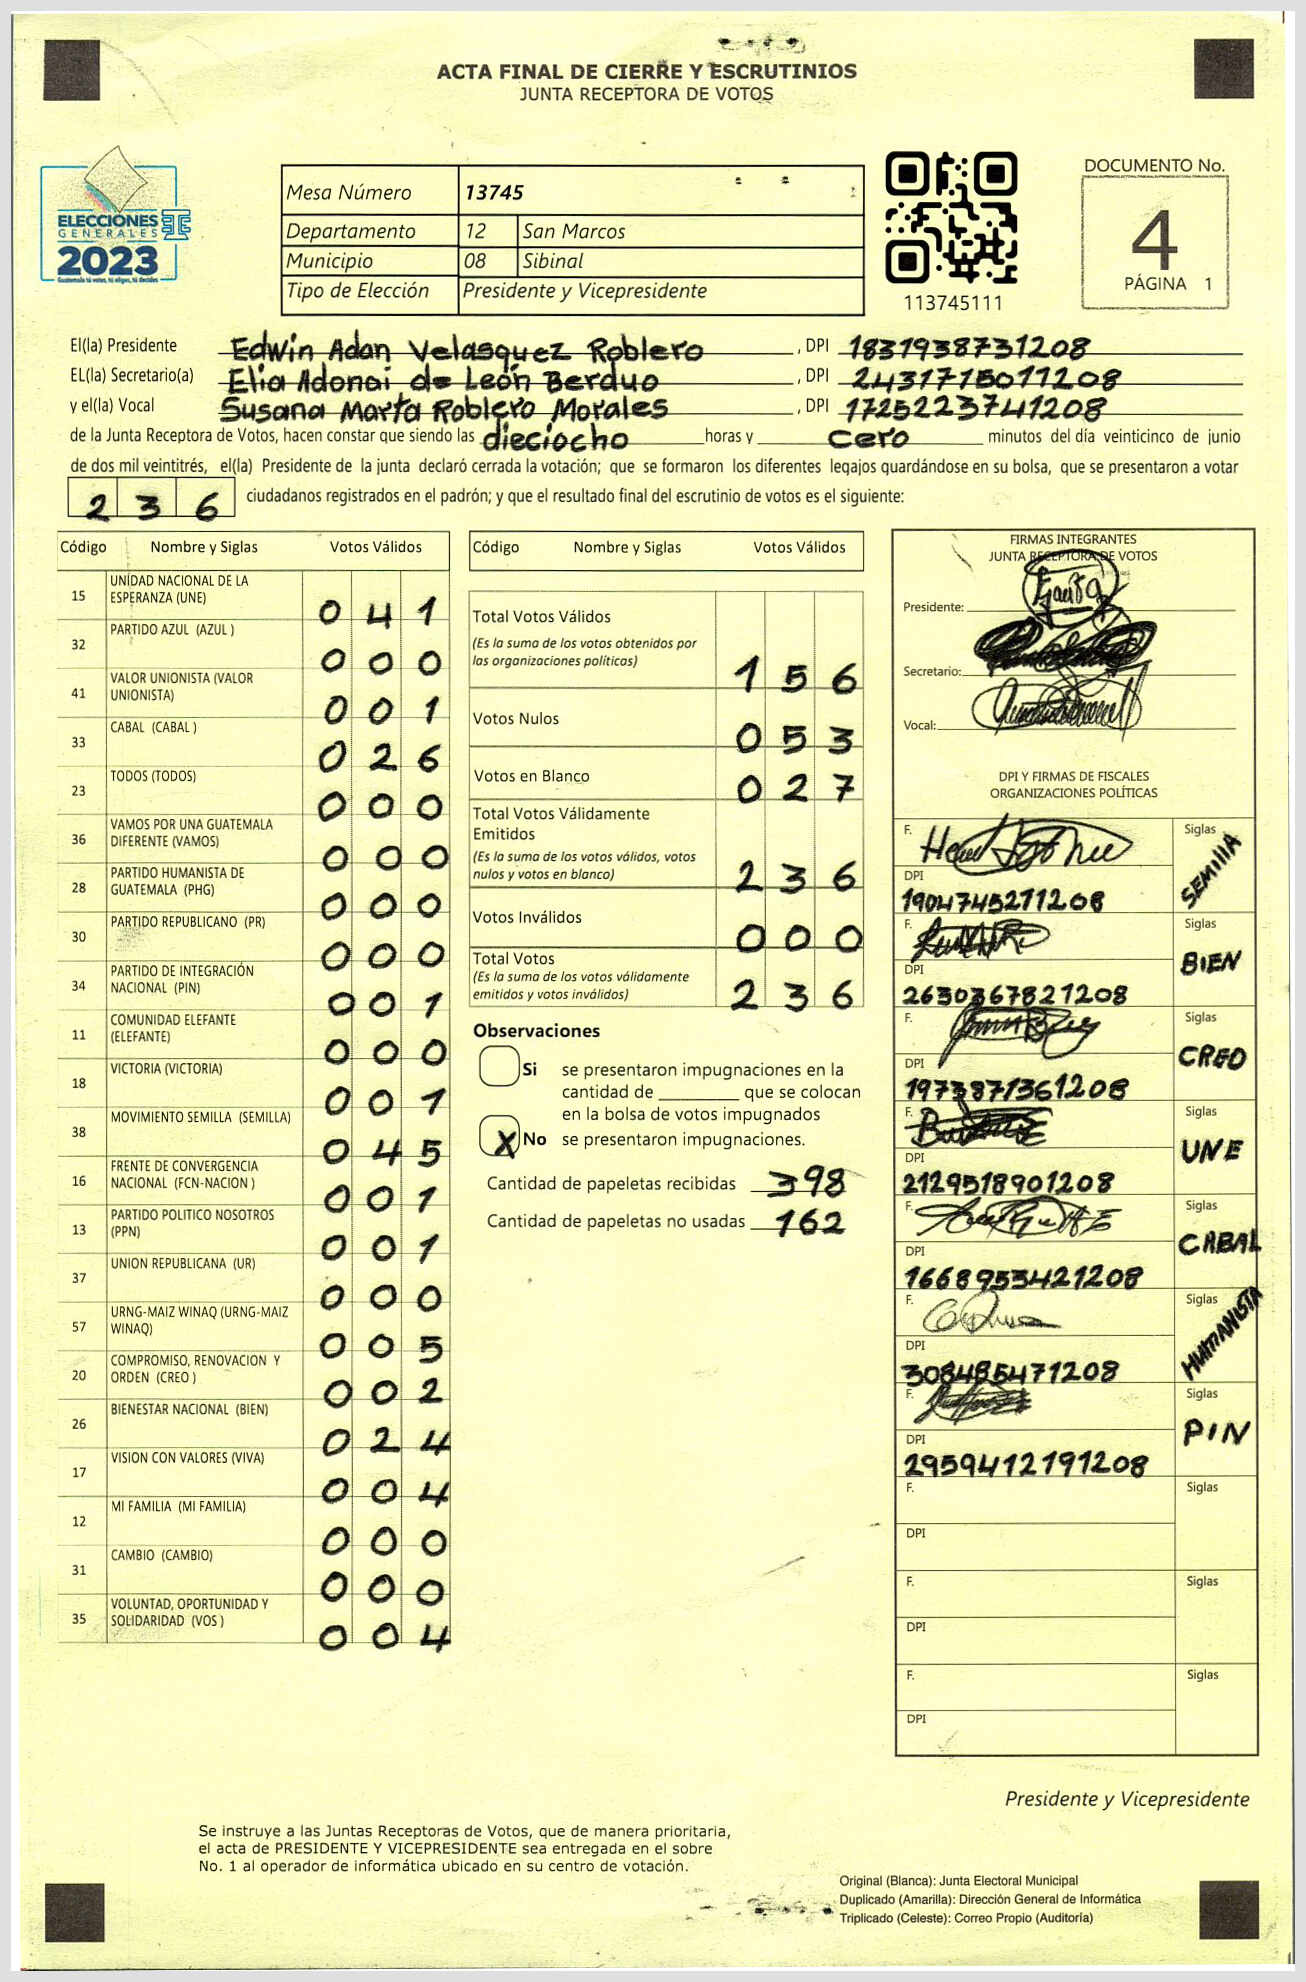 ACTA FINAL DE CIERRE Y ESCRUTINIOS
JUNTA RECEPTORA DE VOTOS
ELECCIONES
GENERALES
2023
Guatemala tú votas, tú eliges, tú decides
Mesa Número 13745
Departamento 12 San Marcos
Municipio 08 Sibinal
Tipo de Elección Presidente y Vicepresidente
113745111
DOCUMENTO No.
4
PÁGINA 1
El(la) Presidente Edwin Adan Velasquez Roblero, DPI 1831938731208
EL(la) Secretario(a) Elia Adonai de León Berduo, DPI 2431715011208
y el(la) Vocal Susana Marta Roblero Morales, DPI 1725223741208
de la Junta Receptora de Votos, hacen constar que siendo las dieciocho horas y cero minutos del día veinticinco de junio
de dos mil veintitrés, el(la) Presidente de la junta declaró cerrada la votación; que se formaron los diferentes legajos guardándose en su bolsa, que se presentaron a votar
236 ciudadanos registrados en el padrón; y que el resultado final del escrutinio de votos es el siguiente:
Código Nombre y Siglas Votos Válidos
15 UNIDAD NACIONAL DE LA ESPERANZA (UNE) 041
32 PARTIDO AZUL (AZUL ) 000
41 VALOR UNIONISTA (VALOR UNIONISTA) 001
33 CABAL (CABAL ) 026
23 TODOS (TODOS) 000
36 VAMOS POR UNA GUATEMALA DIFERENTE (VAMOS) 000
28 PARTIDO HUMANISTA DE GUATEMALA (PHG) 000
30 PARTIDO REPUBLICANO (PR) 000
34 PARTIDO DE INTEGRACIÓN NACIONAL (PIN) 001
11 COMUNIDAD ELEFANTE (ELEFANTE) 000
18 VICTORIA (VICTORIA) 001
38 MOVIMIENTO SEMILLA (SEMILLA) 045
16 FRENTE DE CONVERGENCIA NACIONAL (FCN-NACION ) 001
13 PARTIDO POLITICO NOSOTROS (PPN) 001
37 UNION REPUBLICANA (UR) 000
57 URNG-MAIZ WINAQ (URNG-MAIZ WINAQ) 005
20 COMPROMISO, RENOVACION Y ORDEN (CREO ) 002
26 BIENESTAR NACIONAL (BIEN) 024
17 VISION CON VALORES (VIVA) 004
12 MI FAMILIA (MI FAMILIA) 000
31 CAMBIO (CAMBIO) 000
35 VOLUNTAD, OPORTUNIDAD Y SOLIDARIDAD (VOS ) 004
Código Nombre y Siglas Votos Válidos
Total Votos Válidos
(Es la suma de los votos obtenidos por
las organizaciones políticas) 156
Votos Nulos 053
Votos en Blanco 027
Total Votos Válidamente
Emitidos
(Es la suma de los votos válidos, votos
nulos y votos en blanco) 236
Votos Inválidos 000
Total Votos
(Es la suma de los votos válidamente
emitidos y votos inválidos) 236
Observaciones
Si se presentaron impugnaciones en la
cantidad de ________ que se colocan
en la bolsa de votos impugnados
X No se presentaron impugnaciones.
Cantidad de papeletas recibidas 398
Cantidad de papeletas no usadas 162
FIRMAS INTEGRANTES
JUNTA RECEPTORA DE VOTOS
Presidente:
Secretario:
Vocal:
DPI Y FIRMAS DE FISCALES
ORGANIZACIONES POLÍTICAS
F. Siglas SEMILLA
DPI
1904745271208
F. Siglas BIEN
DPI
2630367821208
F. Siglas CREO
DPI
1973871361208
F. Siglas UNE
DPI
2129518901208
F. Siglas CABAL
DPI
1668953421208
F. Siglas HUMANISTA
DPI
3084856471208
F. Siglas PIN
DPI
2959412191208
F. Siglas
DPI
F. Siglas
DPI
F. Siglas
DPI
Presidente y Vicepresidente
Se instruye a las Juntas Receptoras de Votos, que de manera prioritaria,
el acta de PRESIDENTE Y VICEPRESIDENTE sea entregada en el sobre
No. 1 al operador de informática ubicado en su centro de votación.
Original (Blanca): Junta Electoral Municipal
Duplicado (Amarilla): Dirección General de Informática
Triplicado (Celeste): Correo Propio (Auditoría)